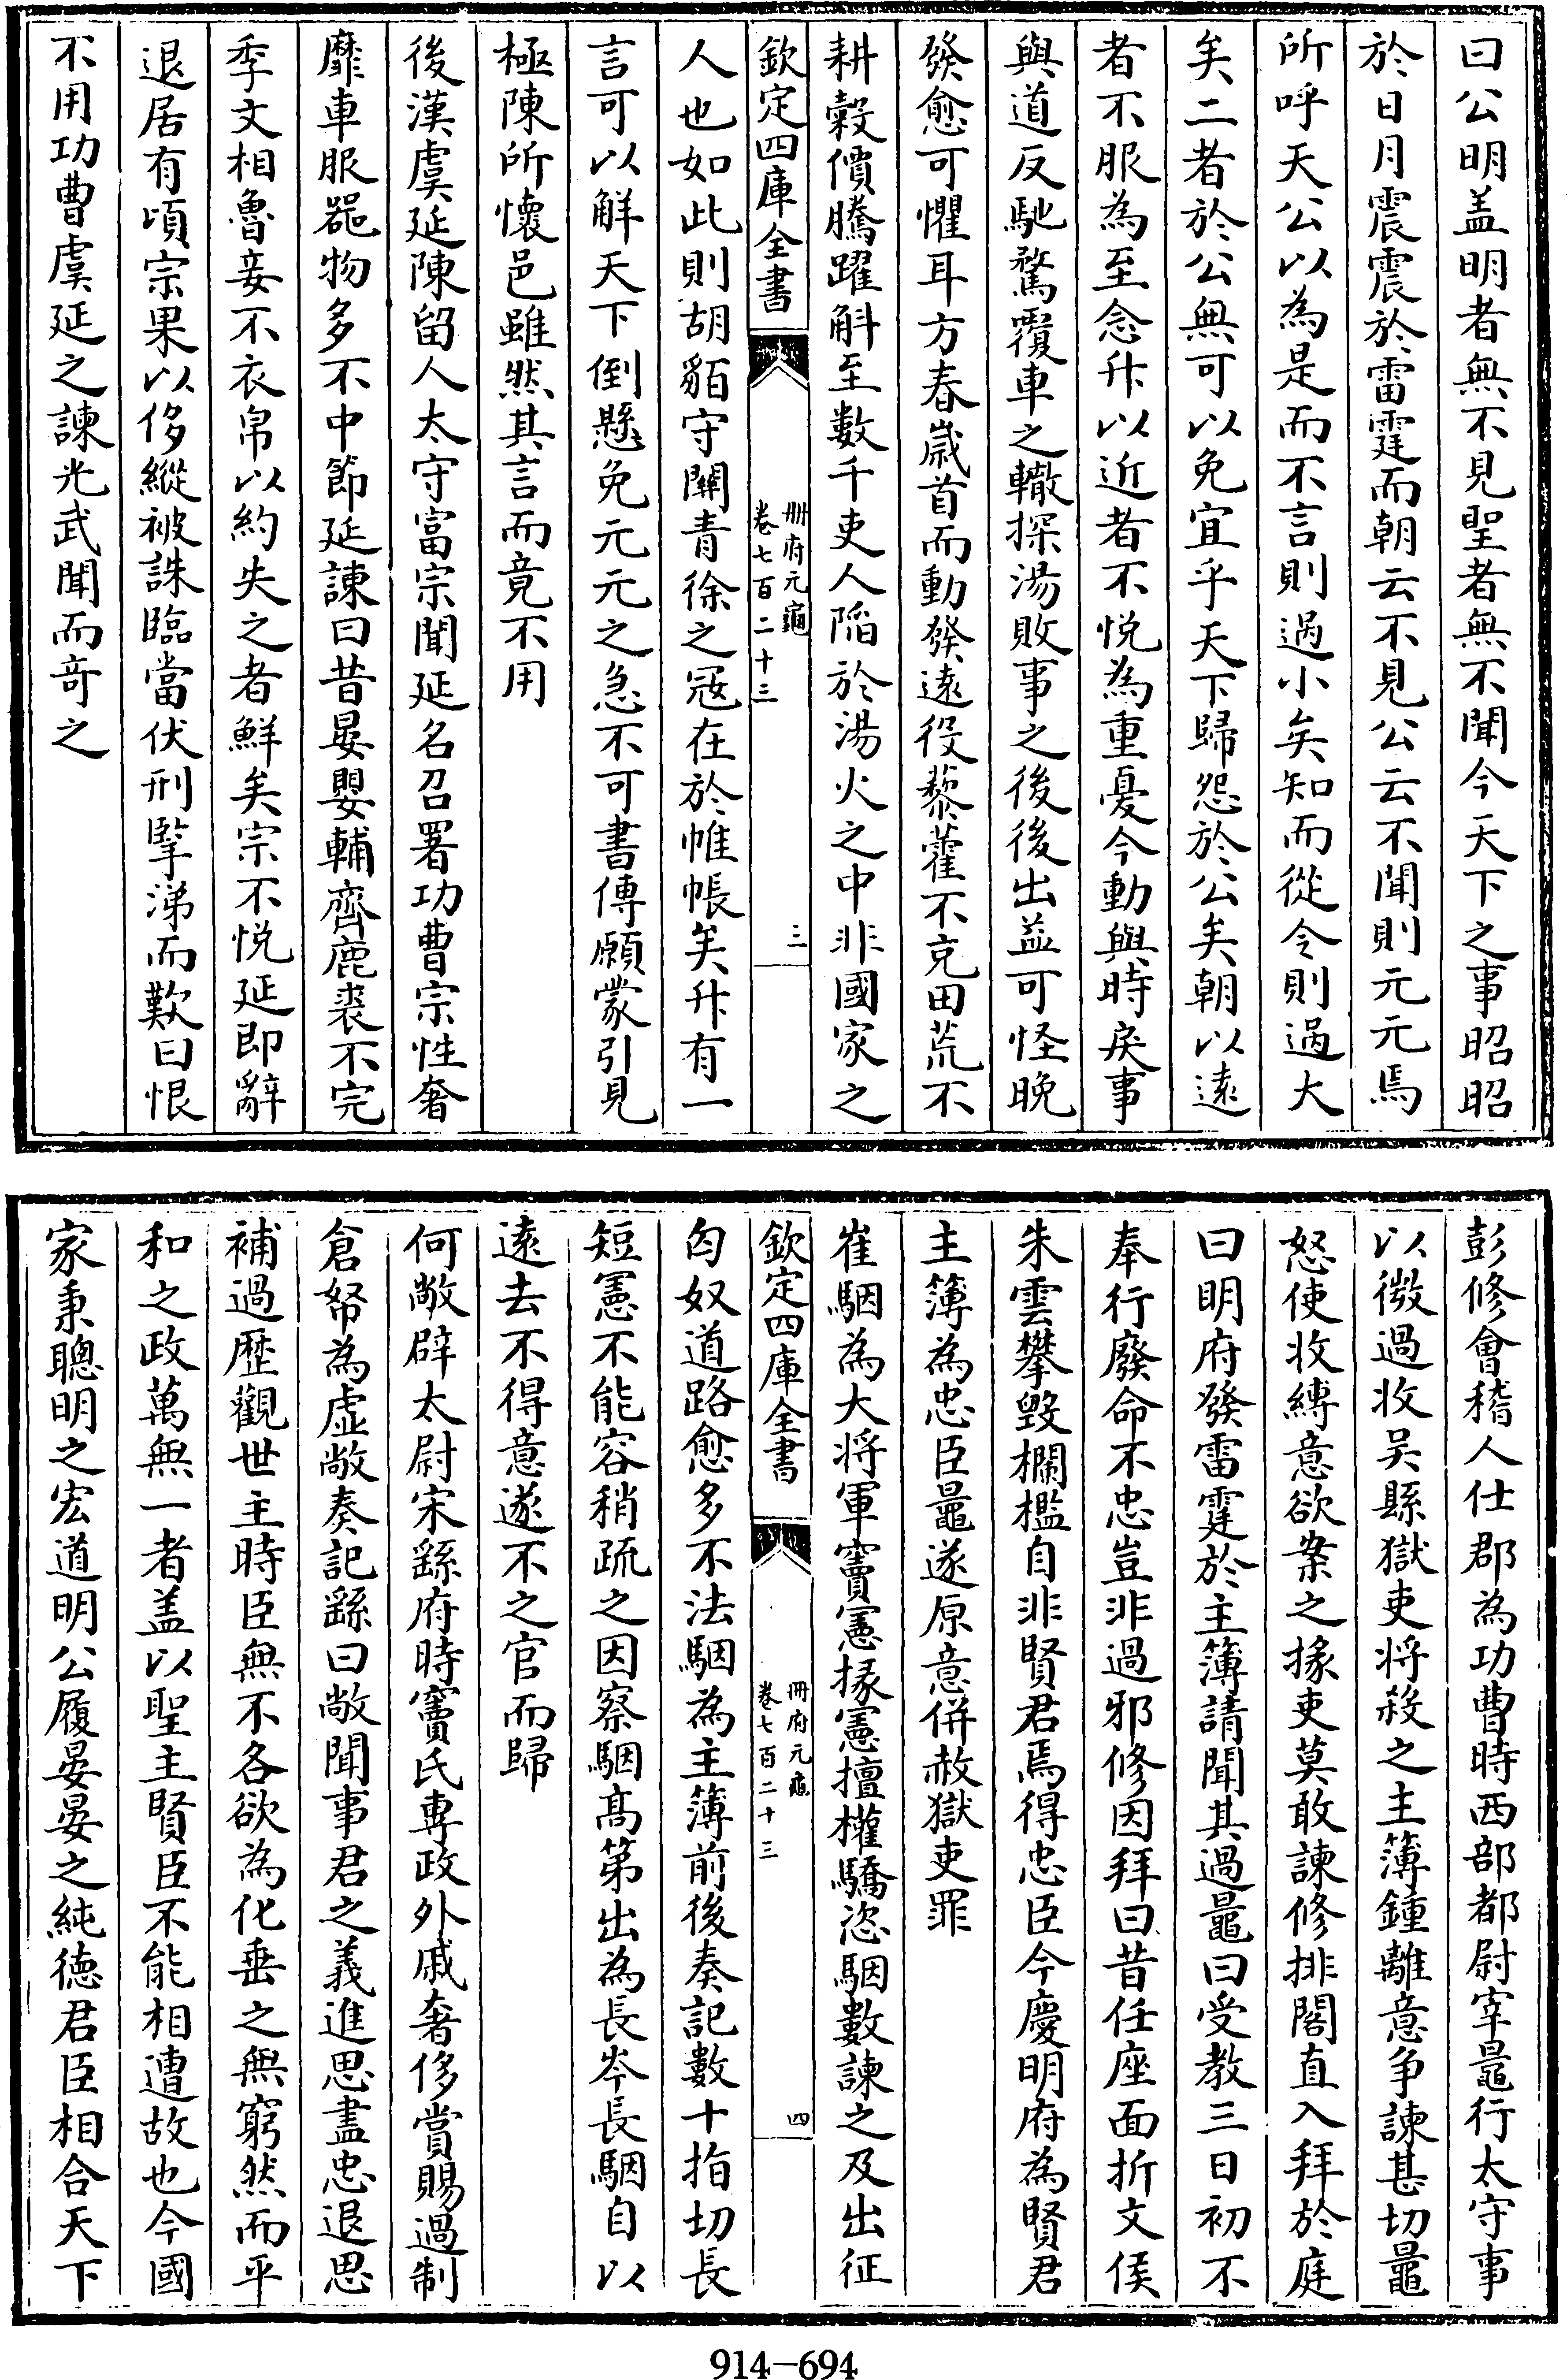 曰公明盖明者無不見聖者無不聞今天下之事昭昭
於日月震震於雷霆而朝云不見公云不聞則元元焉
所呼天公以為是而不言則過小矣知而從令則過大
矣二者於公無可以免宜乎天下歸怨於公矣朝以遠
者不服為至念升以近者不悦為重憂今動與時戾事
與道反馳騖覆車之轍探湯敗事之後後出益可怪晚
發愈可懼耳方春嵗首而動發遠役藜藿不充田荒不
耕穀價騰躍斛至數千吏人陷於湯火之中非國家之
欽定四庫全書
冊府元龜
卷七百二十三
三
人也如此則胡貊守闗青徐之冦在於帷帳矣升有一
言可以解天下倒懸免元元之急不可書傳願蒙引見
極陳所懷邑雖然其言而竟不用
後漢虞延陳留人太守富宗聞延名召署功曹宗性奢
靡車服器物多不中節延諫曰昔晏嬰輔齊鹿裘不完
季文相魯妾不衣帛以約失之者鮮矣宗不悦延即辭
退居有頃宗果以侈縱被誅臨當伏刑擥涕而歎曰恨
不用功曹虞延之諫光武聞而竒之
彭修會稽人仕郡為功曹時西部都尉宰鼂行太守事
以微過收吴縣獄吏将殺之主簿鍾離意争諫甚切鼂
怒使收縛意欲案之掾吏莫敢諫修排閤直入拜於庭
曰明府發雷霆於主簿請聞其過鼂曰受教三日初不
奉行廢命不忠豈非過邪修因拜曰昔任座面折文侯
朱雲攀毀欄檻自非賢君焉得忠臣今慶明府為賢君
主簿為忠臣鼂遂原意併赦獄吏罪
崔駰為大将軍竇憲掾憲擅權驕恣駰數諫之及出征
欽定四庫全書
冊府元龜
卷七百二十三
四
匈奴道路愈多不法駰為主簿前後奏記數十指切長
短憲不能容稍疏之因察駰髙第出為長岑長駰自以
遠去不得意遂不之官而歸
何敞辟太尉宋繇府時竇氏專政外戚奢侈賞賜過制
倉帑為虚敞奏記繇曰敞聞事君之義進思盡忠退思
補過歴觀世主時臣無不各欲為化垂之無窮然而平
和之政萬無一者盖以聖主賢臣不能相遭故也今國
家秉聰明之宏道明公履晏晏之純徳君臣相合天下
914-694